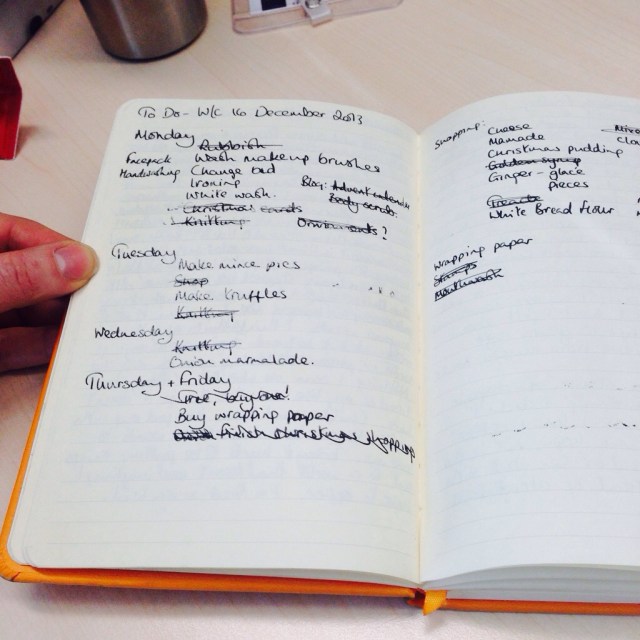 To Do - W/C 16 December 2013
Monday Rubbish
Facepack Wash makeup brushes
Handwashing Change bed
Ironing
White wash. Blog: Advent calendar
Christmas cards Body scrub.
Knitting ?
Tuesday
Make mince pies
Shop
Make truffles
Knitting
Wednesday
Knitting
Onion marmalade.
Thursday + Friday
Buy wrapping paper
finish christmas shopping
Shopping: Cheese
Mamade
Christmas pudding
Golden syrup
Ginger - glace
pieces
Treacle
White Bread flour
Wrapping paper
Stamps
Mouthwash